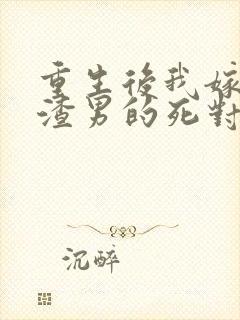 重生後我嫁
渣男的死對
沉醉